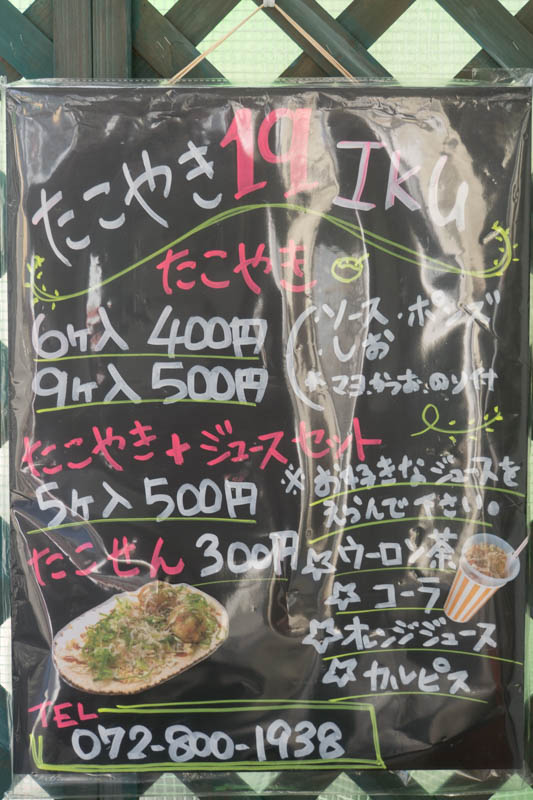 たこやき19 IKU
たこやき
6ケ入 400円
9ケ入 500円
(ソース・ポンズ
しお
*マヨ、かつお、のり付
たこやき+ジュースセット
5ケ入 500円
※お好きなジュースを
えらんで下さい。
たこせん 300円
☆ウーロン茶
☆コーラ
☆オレンジジュース
☆カルピス
TEL
072-800-1938